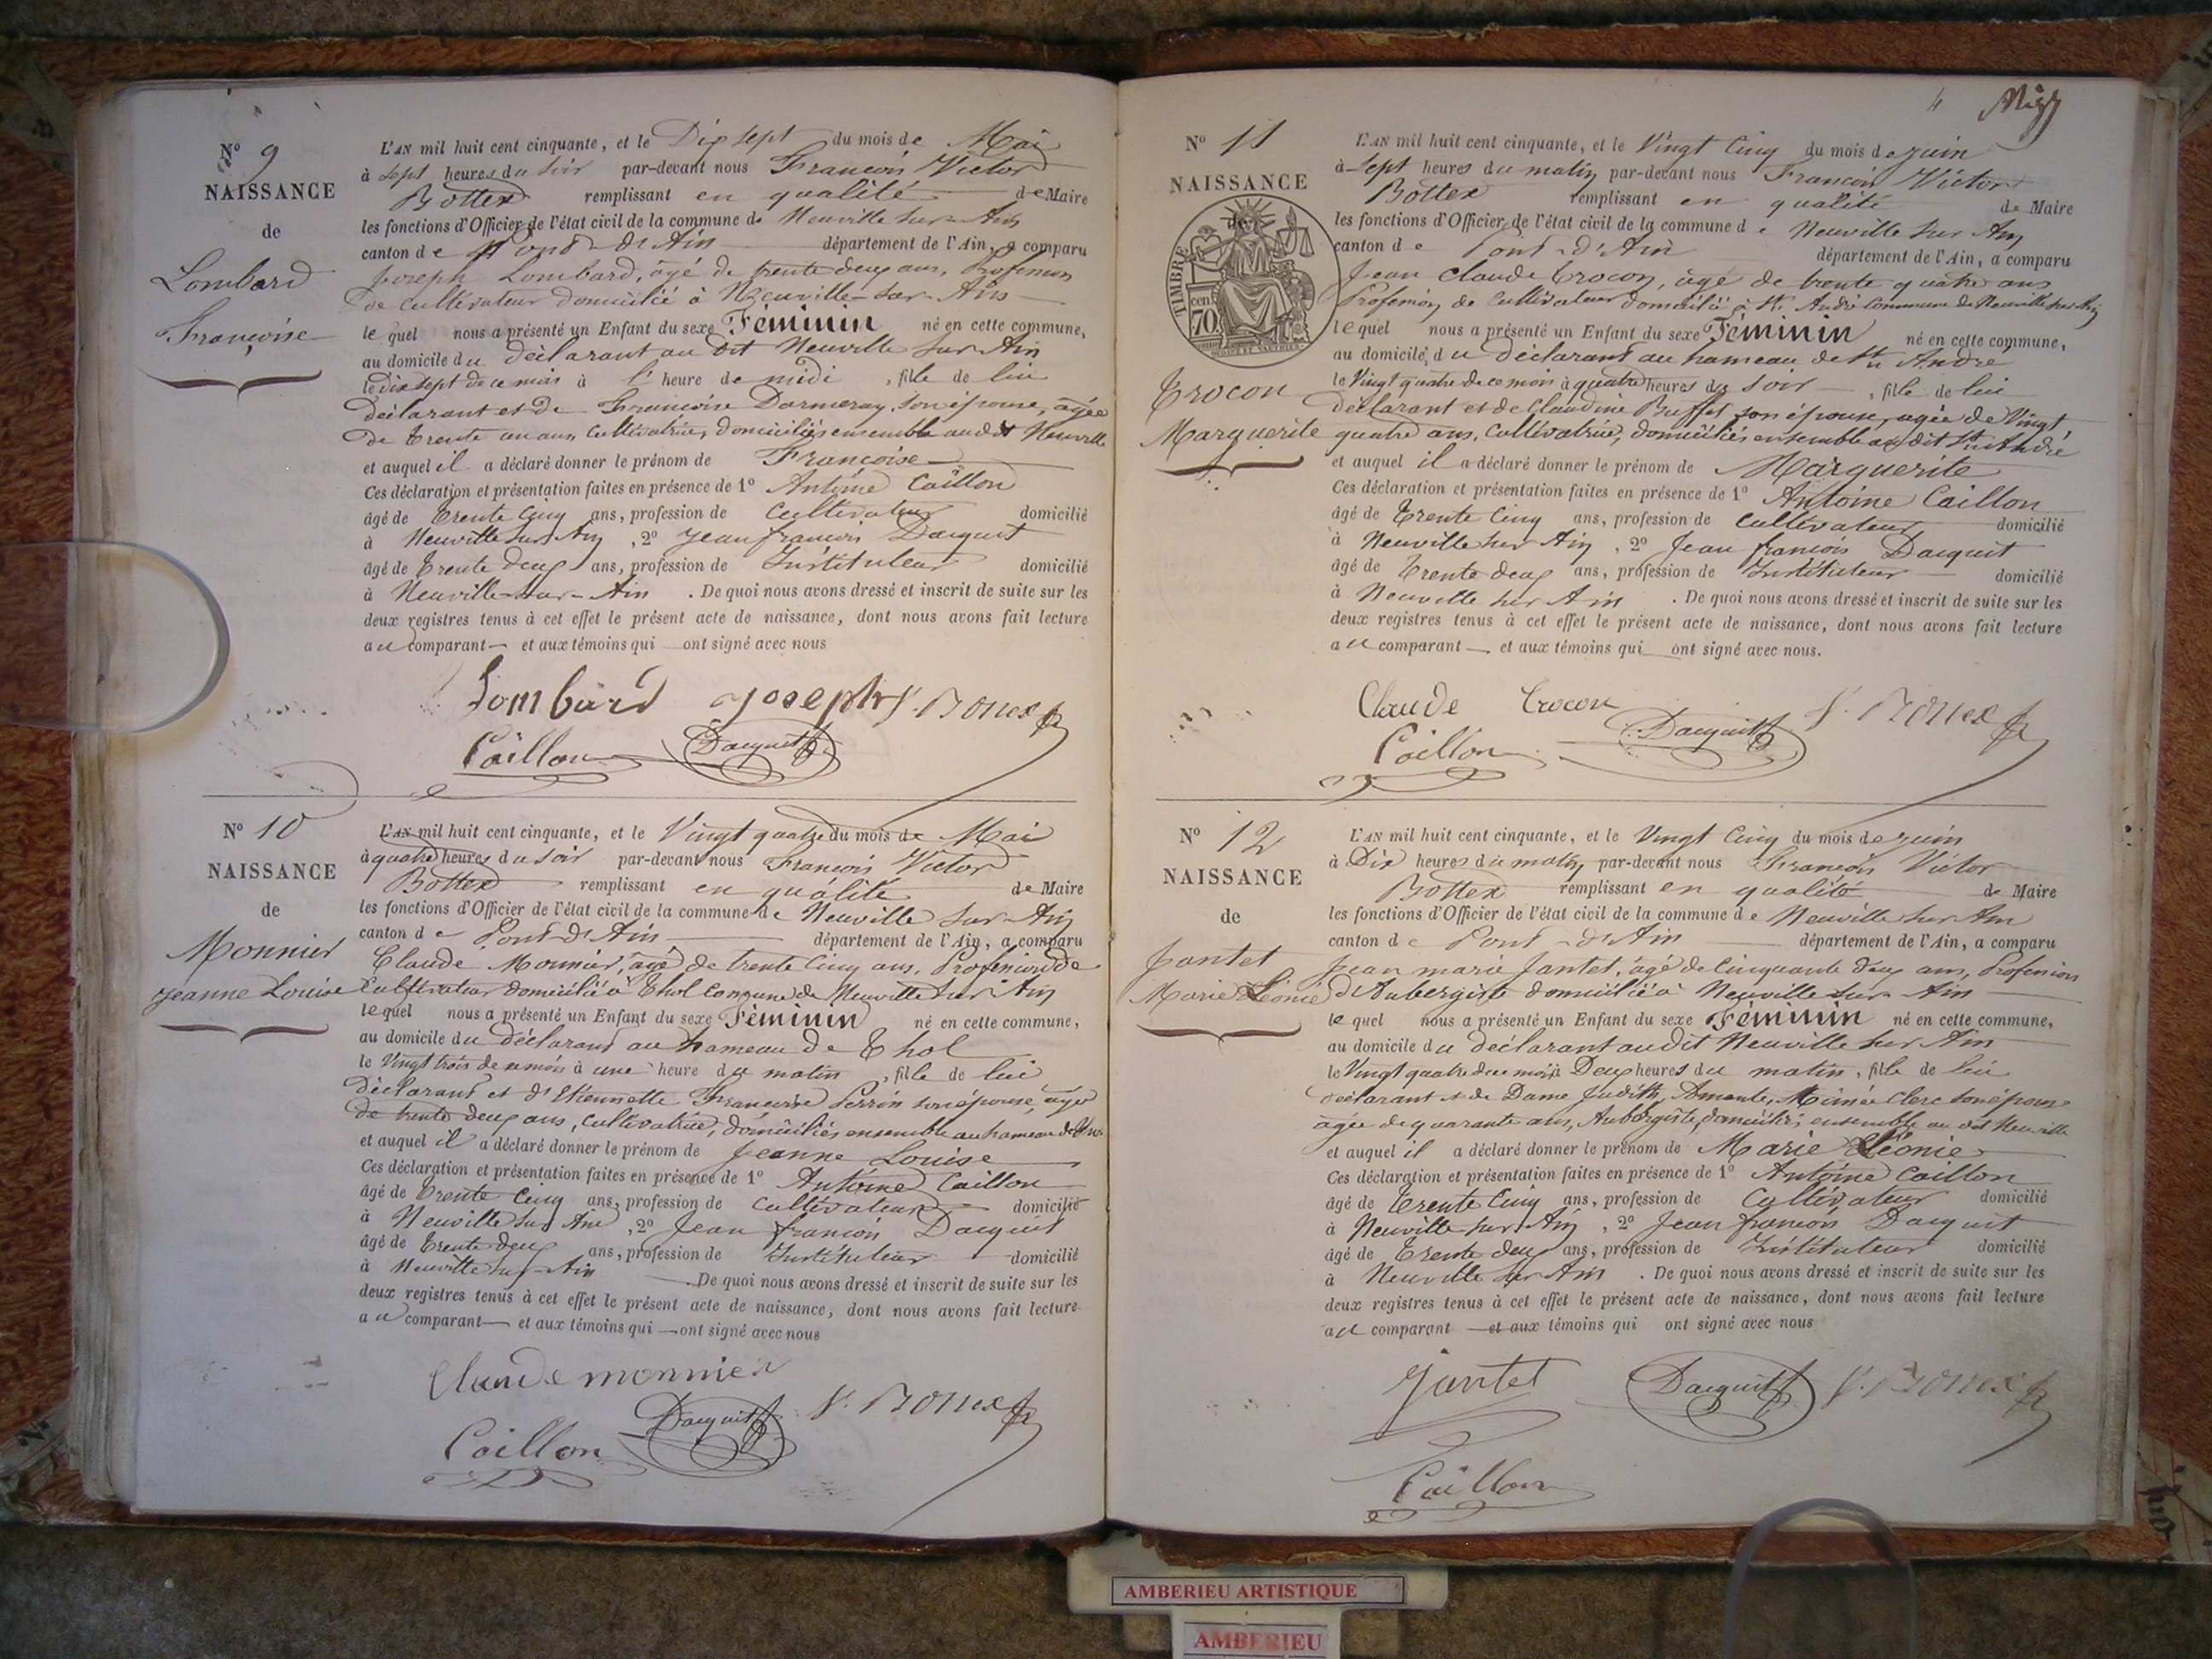 N° 9
NAISSANCE
de
Lombard
Françoise
L'AN mil huit cent cinquante, et le Dix sept du mois de Mai
à sept heures du soir par-devant nous François Victor
Bottex remplissant en qualité de Maire
les fonctions d'Officier de l'état civil de la commune de Neuville sur Ain
canton de Pont d'Ain département de l'Ain, a comparu
Joseph Lombard, âgé de trente deux ans, Profession
de cultivateur domicilié à Neuville-sur-Ain
lequel nous a présenté un Enfant du sexe Féminin né en cette commune,
au domicile du déclarant au dit Neuville sur Ain
le Dix sept de ce mois à l' heure de midi, fille de lui
déclarant et de Françoise Darmeray, son épouse, âgée
de trente un ans, cultivatrice, domiciliés ensemble au dit Neuville
et auquel il a déclaré donner le prénom de Françoise
Ces déclaration et présentation faites en présence de 1° Antoine Caillon
âgé de trente cinq ans, profession de cultivateur domicilié
à Neuville sur Ain, 2° Jean françois Dacquit
âgé de trente deux ans, profession de Instituteur domicilié
à Neuville-sur-Ain. De quoi nous avons dressé et inscrit de suite sur les
deux registres tenus à cet effet le présent acte de naissance, dont nous avons fait lecture
au comparant et aux témoins qui ont signé avec nous
Lombard Joseph V. Bottex
Caillon Dacquit
N° 10
NAISSANCE
de
Monnier
Jeanne Louise
L'AN mil huit cent cinquante, et le Vingt quatre du mois de Mai
à quatre heures du soir par-devant nous François Victor
Bottex remplissant en qualité de Maire
les fonctions d'Officier de l'état civil de la commune de Neuville sur Ain
canton de Pont d'Ain département de l'Ain, a comparu
Claude Monnier, âgé de trente cinq ans, Profession de
cultivateur domicilié à Thol commune de Neuville sur Ain
lequel nous a présenté un Enfant du sexe Féminin né en cette commune,
au domicile du déclarant au hameau de Thol
le Vingt trois de ce mois à une heure du matin, fille de lui
déclarant et d'Etiennette Françoise Perrin son épouse, âgée
de trente deux ans, cultivatrice, domiciliés ensemble au hameau de Thol
et auquel il a déclaré donner le prénom de Jeanne Louise
Ces déclaration et présentation faites en présence de 1° Antoine Caillon
âgé de trente cinq ans, profession de cultivateur domicilié
à Neuville sur Ain, 2° Jean françois Dacquit
âgé de trente deux ans, profession de Instituteur domicilié
à Neuville sur-Ain De quoi nous avons dressé et inscrit de suite sur les
deux registres tenus à cet effet le présent acte de naissance, dont nous avons fait lecture
au comparant et aux témoins qui ont signé avec nous
Claude monnier
Caillon Dacquit V. Bottex
4
N° 11
NAISSANCE
de
TIMBRE
70 cen
Trocon
Marguerite
L'AN mil huit cent cinquante, et le Vingt Cinq du mois de juin
à sept heures du matin par-devant nous François Victor
Bottex remplissant en qualité de Maire
les fonctions d'Officier de l'état civil de la commune de Neuville sur Ain
canton de Pont-d'Ain département de l'Ain, a comparu
Jean Claude Trocon, âgé de trente quatre ans
Profession de Cultivateur domicilié à St. André commune de Neuville sur Ain
lequel nous a présenté un Enfant du sexe Féminin né en cette commune,
au domicile du déclarant au hameau de St André
le Vingt quatre de ce mois à quatre heures du soir, fille de lui
déclarant et de Claudine Buffet son épouse, agée de Vingt
quatre ans, Cultivatrice, domiciliés ensemble au dit St André
et auquel il a déclaré donner le prénom de Marguerite
Ces déclaration et présentation faites en présence de 1° Antoine Caillon
âgé de trente cinq ans, profession de Cultivateur domicilié
à Neuville sur Ain, 2° Jean françois Dacquit
âgé de trente deux ans, profession de Instituteur domicilié
à Neuville sur Ain. De quoi nous avons dressé et inscrit de suite sur les
deux registres tenus à cet effet le présent acte de naissance, dont nous avons fait lecture
au comparant et aux témoins qui ont signé avec nous.
Claude Trocon Dacquit V. Bottex
Caillon
N° 12
NAISSANCE
de
Jantet
Marie Léonie
L'AN mil huit cent cinquante, et le Vingt Cinq du mois de juin
à Dix heures du matin par-devant nous François Victor
Bottex remplissant en qualité de Maire
les fonctions d'Officier de l'état civil de la commune de Neuville sur Ain
canton de Pont-d'Ain département de l'Ain, a comparu
Jean marie Jantet, âgé de Cinquante deux ans, Profession
d'Aubergiste domicilié à Neuville sur Ain
lequel nous a présenté un Enfant du sexe Féminin né en cette commune,
au domicile du déclarant au dit Neuville sur Ain
le Vingt quatre du mois à Deux heures du matin, fille de lui
déclarant et de Dame Judith, Clerc son épouse
agée de quarante ans, Aubergiste, domiciliés ensemble au dit Neuville
et auquel il a déclaré donner le prénom de Marie Léonie
Ces déclaration et présentation faites en présence de 1° Antoine Caillon
âgé de trente Cinq ans, profession de Cultivateur domicilié
à Neuville sur Ain, 2° Jean françois Dacquit
âgé de trente deux ans, profession de Instituteur domicilié
à Neuville sur Ain. De quoi nous avons dressé et inscrit de suite sur les
deux registres tenus à cet effet le présent acte de naissance, dont nous avons fait lecture
au comparant et aux témoins qui ont signé avec nous
Jantet Dacquit V. Bottex
Caillon
AMBERIEU ARTISTIQUE
AMBERIEU